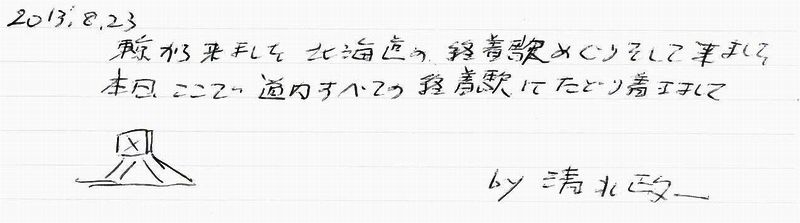 2013.8.23
東京から来ました 北海道の終着駅めぐりをして来ました
本日、ここで 道内すべての終着駅にたどり着きまして
by 清水政一